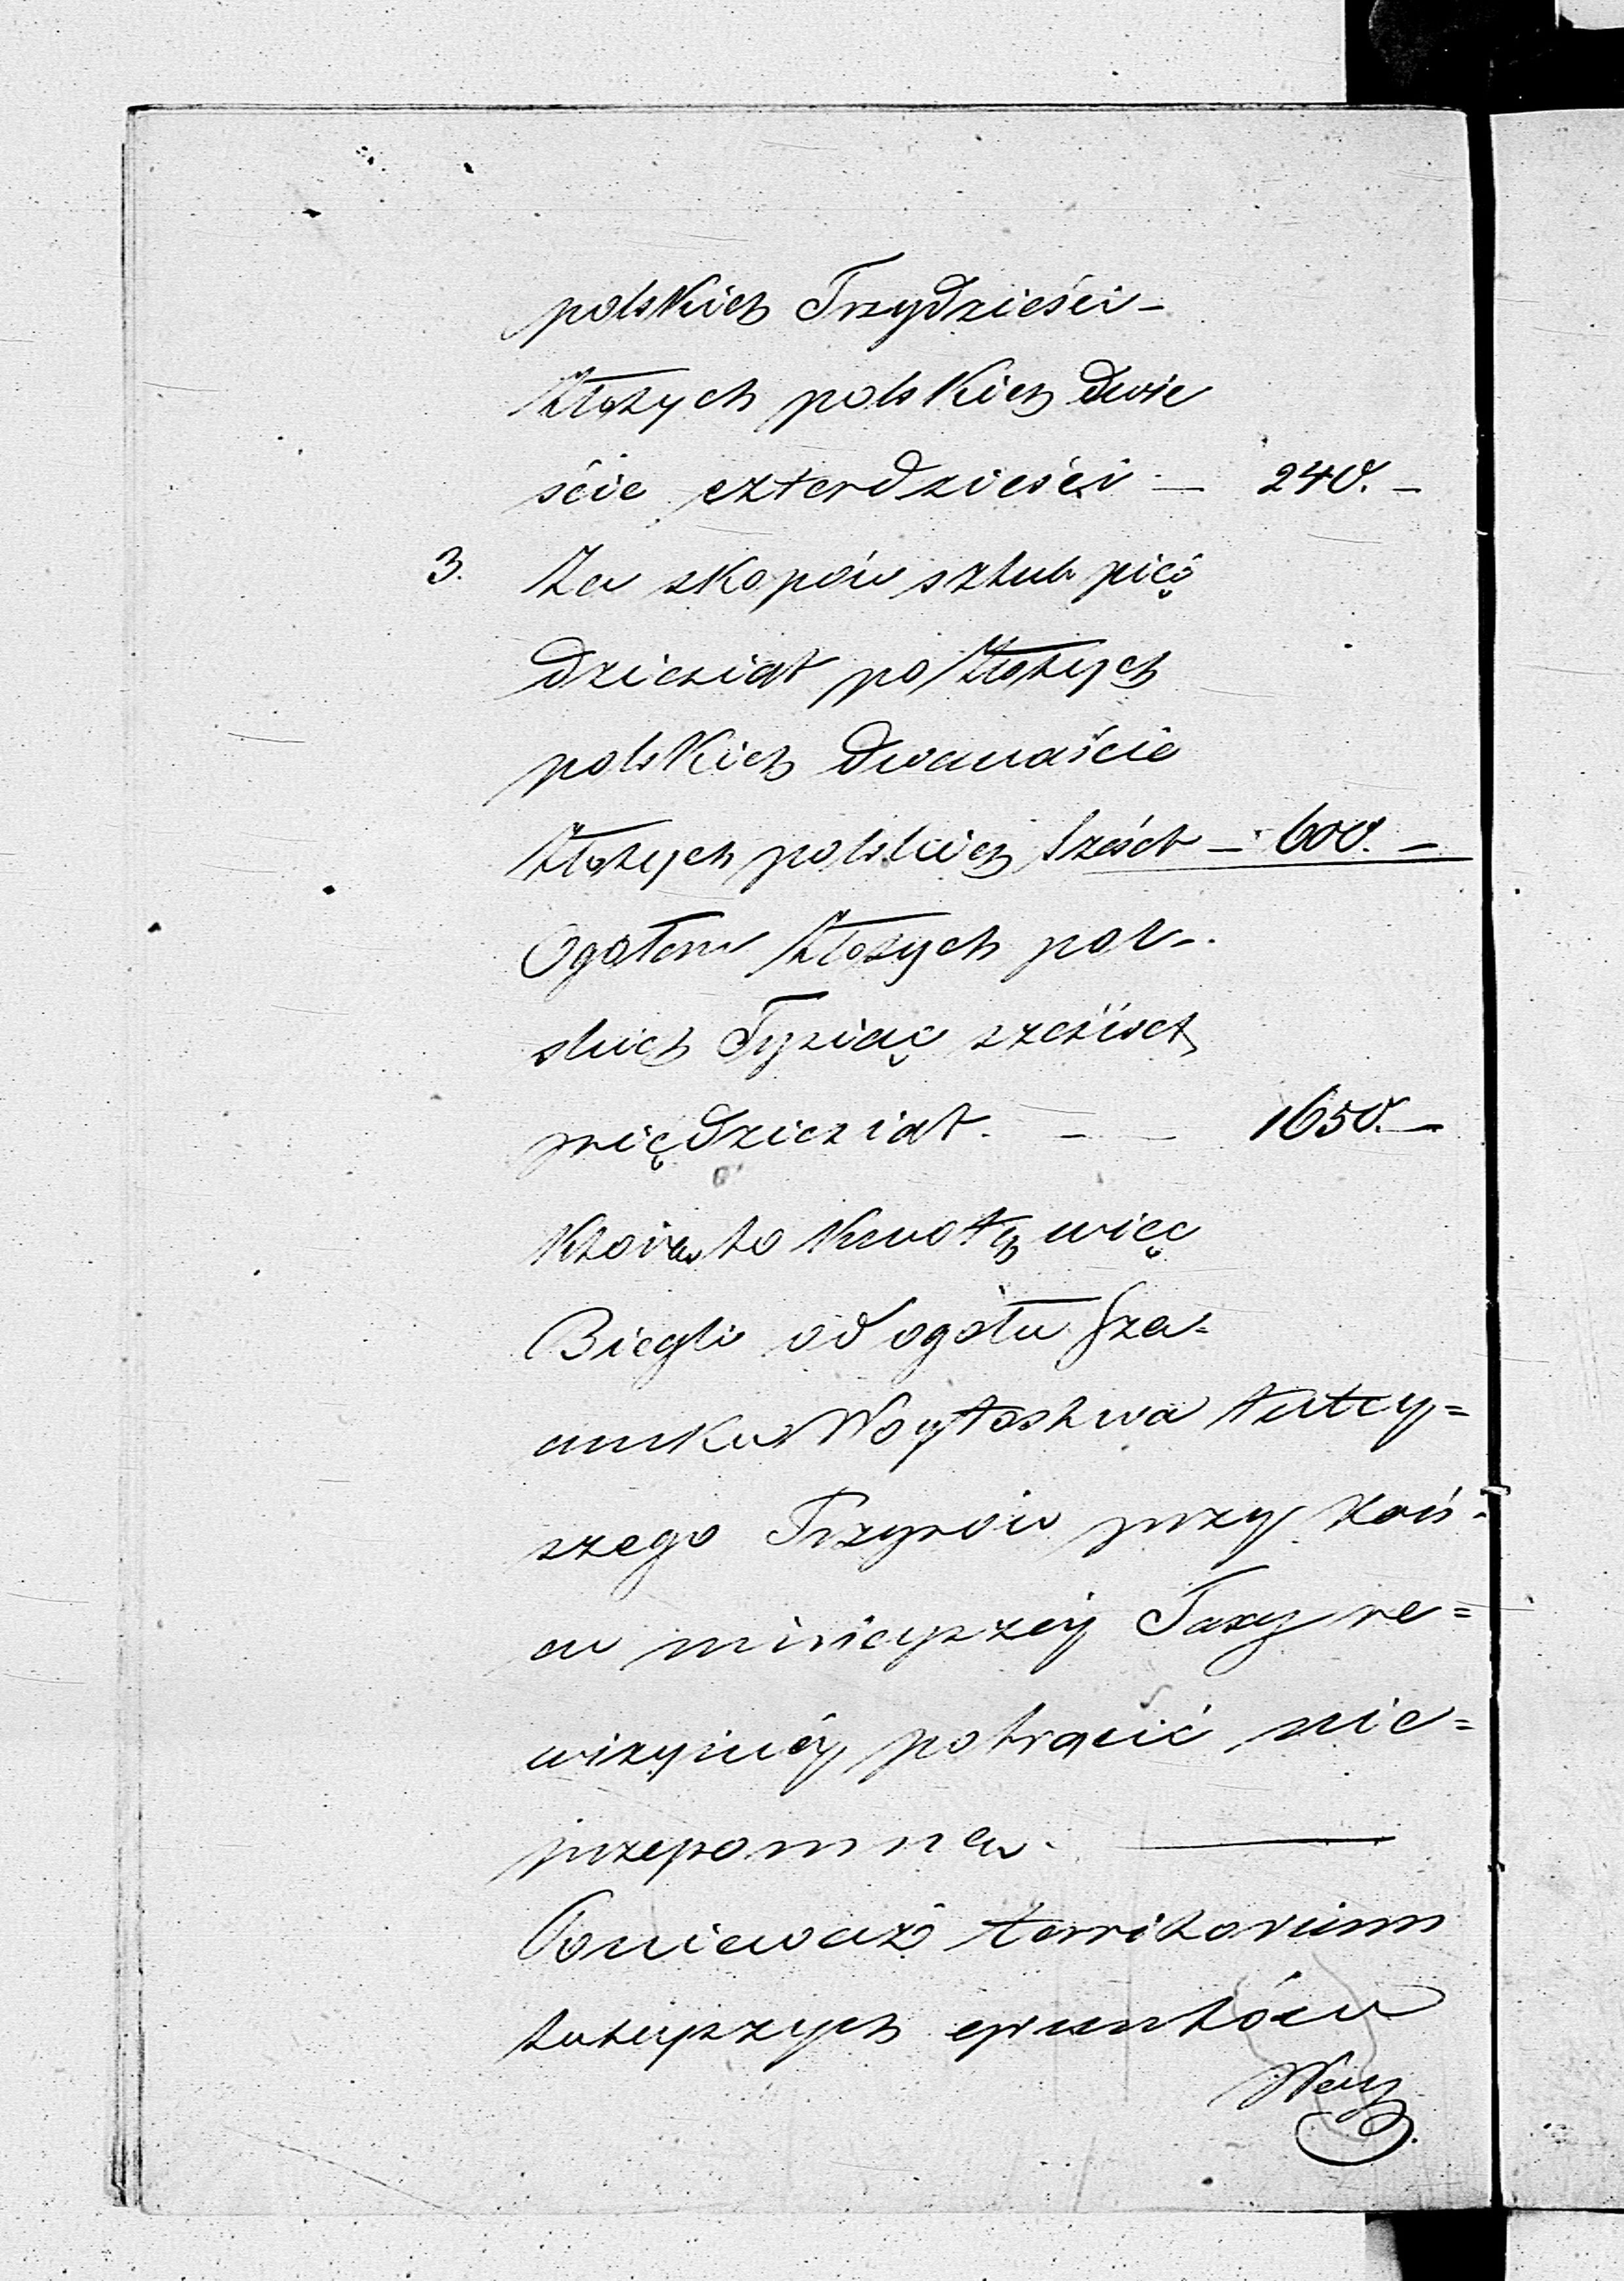 polskich Trzydzieści –
Złotych polskich dwie
ście czterdzieści – 240. –
3. Za skopów sztuk pięć
dziesiąt po Złotych
polskich dwanaście
Złotych polskich Sześćt – 600. –
Ogółem Złotych pol-
skich Tysiąc sześćset
pięćdziesiąt. – – 1650. –
Która to Kwotę więc
Biegli od ogółu Sza=
unku Woytostwa tutey=
szego Trzyrów przy koń-
cu ninieyszéy Taxy re=
wizyinéy potrącić nie=
przepomną. ———
Ponieważ territorium
tuteyszych gruntów